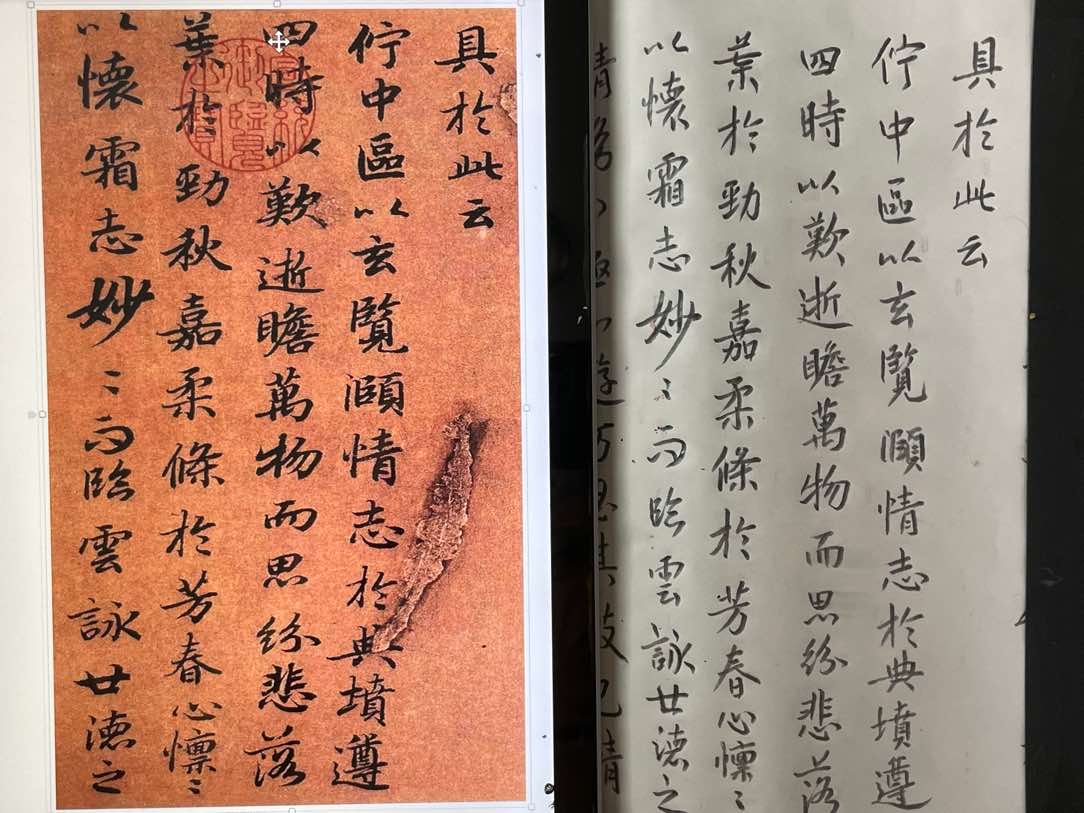 具於此云
佇中區以玄覽頤情志於典墳遵
四時以歎逝瞻萬物而思紛悲落
葉於勁秋嘉柔條於芳春心懍〻
以懷霜志妙〻而臨雲詠世德之
具於此云
佇中區以玄覽頤情志於典墳遵
四時以歎逝瞻萬物而思紛悲落
葉於勁秋嘉柔條於芳春心懍〻
以懷霜志妙〻而臨雲詠世德之